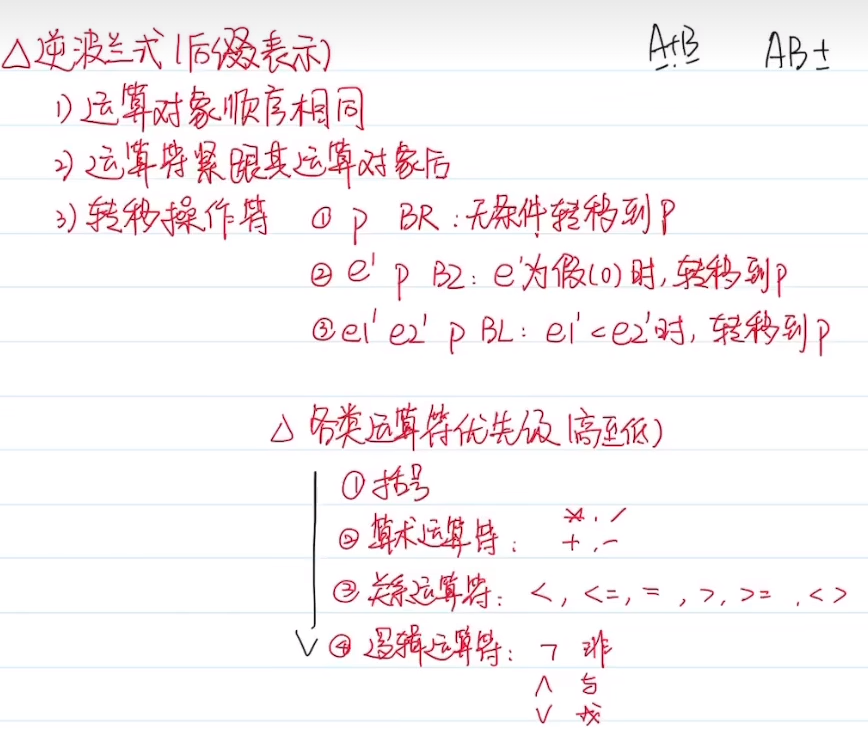 △逆波兰式(后缀表示) A+B AB+
1) 运算对象顺序相同
2) 运算符紧跟其运算对象后
3) 转移操作符 ① p BR:无条件转移到P
② e' p BZ: e'为假(0)时,转移到p
③ e1' e2' p BL: e1'<e2'时, 转移到p
△ 各类运算符优先级(高至低)
① 括号
② 算术运算符: *, /
+, -
③ 关系运算符: <, <=, =, >, >=, <>
④ 逻辑运算符: ¬ 非
∧ 与
∨ 或